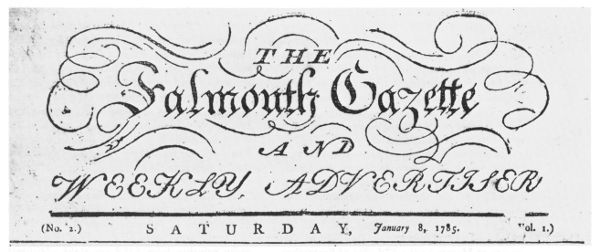 THE
Falmouth Gazette
AND
WEEKLY ADVERTISER
(No. 2.) SATURDAY, January 8, 1785. Vol. 1.)